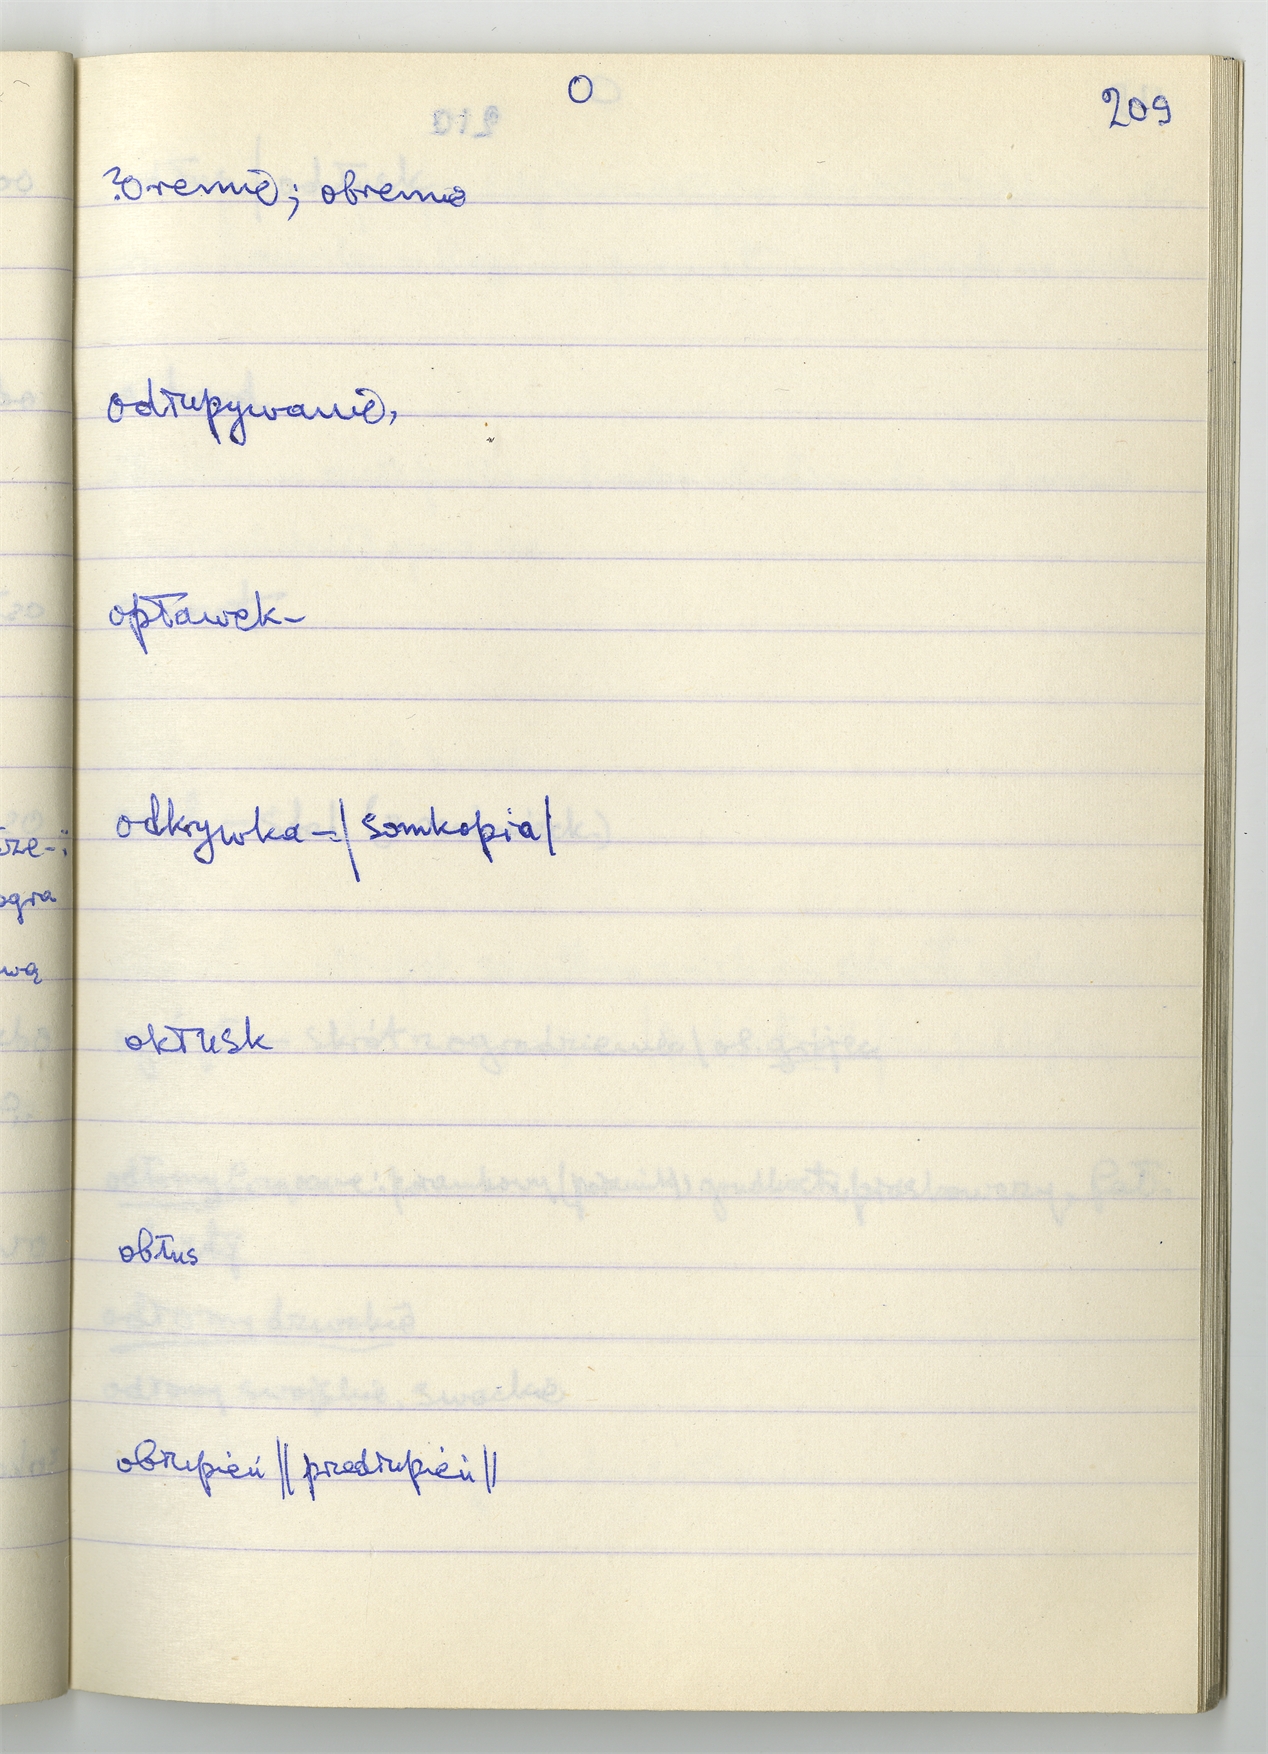 O
209
?Oremie; obreme
odłupywanie,
opławek-
odkrywka-/somkopia/
okłusk
obłus
obłupień || przedłupień ||
rze-:
ogra
wą